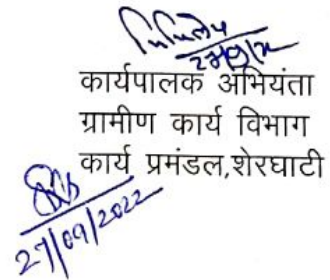 27/9/22
कार्यपालक अभियंता
ग्रामीण कार्य विभाग
कार्य प्रमंडल,शेरघाटी
27/09/2022